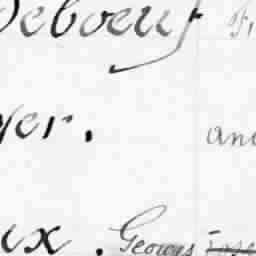 Deboeuf
yer. and
ux. Georges